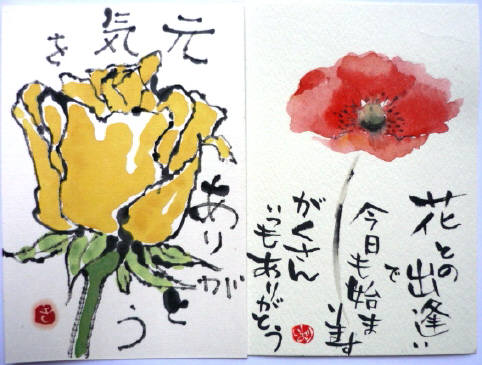 元気を
ありがとう
花との出逢い
で
今日も始ま
ります
がくさん
いつもありがとう